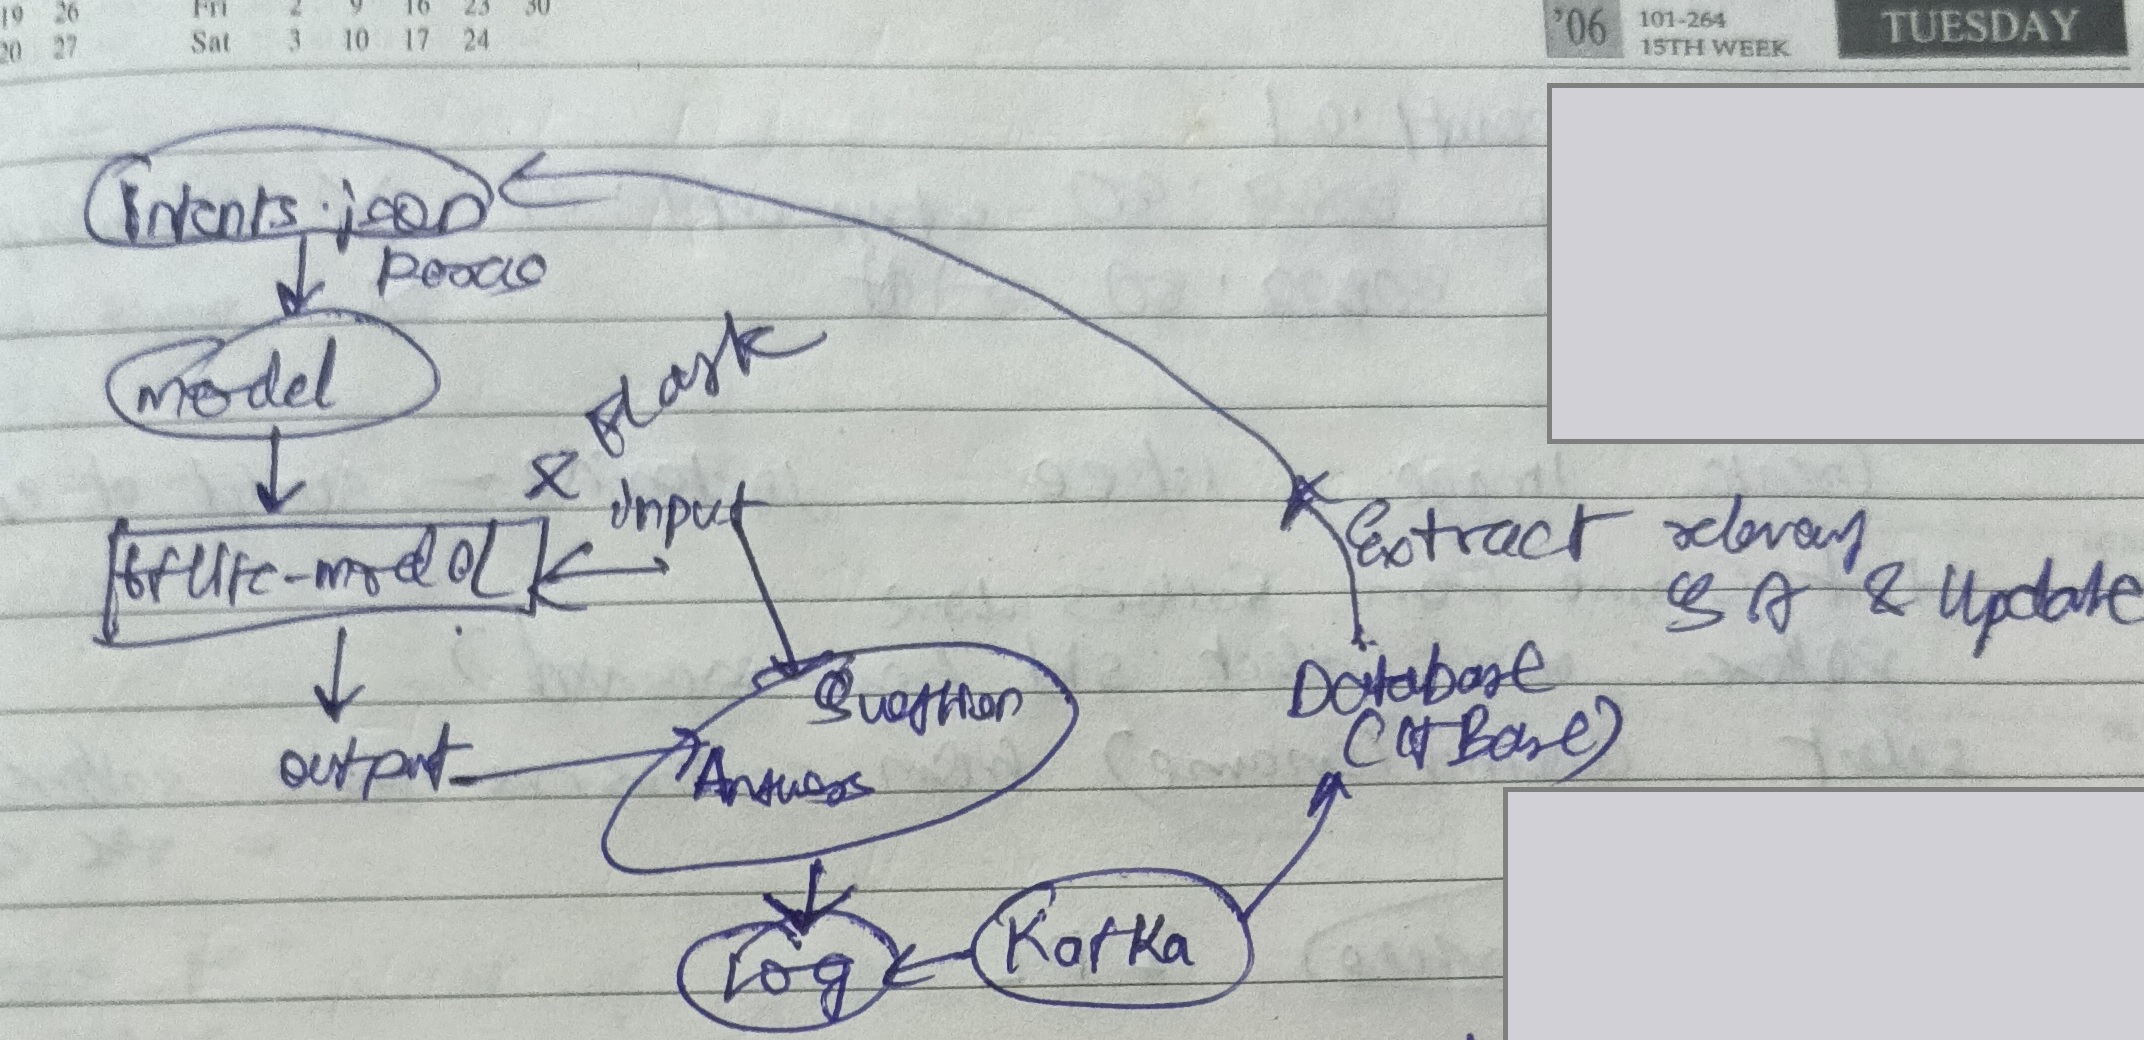 19 26 Fri 2 9 16 23 30
20 27 Sat 3 10 17 24
'06
101-264
15TH WEEK
TUESDAY
Intents.json
model
& flask
input
tflite-model
output
Question
Answers
Log
Kafka
Database
Base)
Extract
Q A & Update